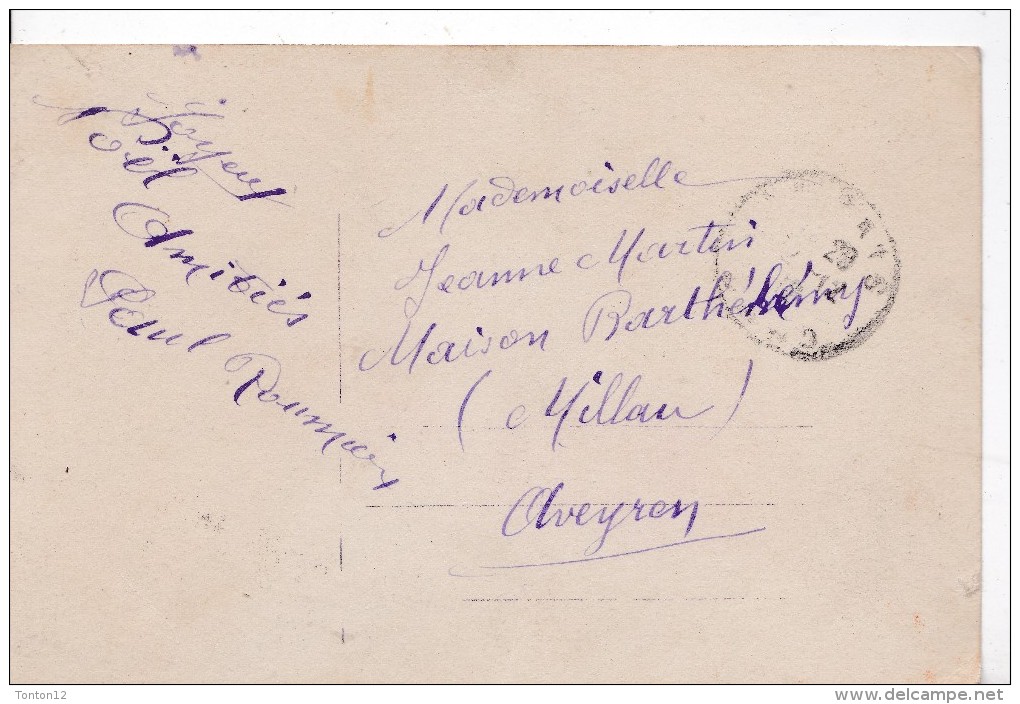 Joyeux
Noël
Amitiés
Paul
Mademoiselle
Jeanne Martin
Maison Barthélémy
(Millau)
Aveyron
29
Tonton12
www.delcampe.net